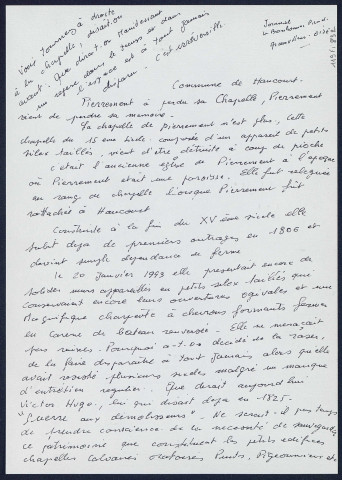 Vous tournez à droite
à la chapelle, disait-on
avant. Que dirait-on maintenant
un repère dans le temps et dans
l'espace est à tout jamais
disparu. c'est irréversible.
Journal
Commune de Haucourt.
Pierrement a perdu sa Chapelle, Pierrement
vient de perdre sa mémoire.
La chapelle de pierrement n'est plus, cette
chapelle du 15 ème siècle, composée d'un appareil de petits
silex taillés, vient d'être détruite à coup de pioche
c'était l'ancienne église de Pierrement à l'époque
où Pierrement était une paroisse. Elle fut releguée
au rang de chapelle lorsque Pierrement fut
rattaché à Haucourt.
Construite à la fin du XV ème siècle elle
subit déjà de premiers outrages en 1806 et
devint simple dépendance de ferme
Le 20 Janvier 1993 elle présentait encore de
solides murs appareillés en petits silex taillés qui
conservaient encore leurs ouvertures ogivales et une
Magnifique charpente à chevrons formants fermes
en carène de bateau renversée. Elle ne menaçait
pas ruines. Pourquoi a-t-on décidé de la raser,
de la faire disparaître à tout Jamais alors qu'elle
avait résisté plusieurs siècles malgré un manque
d'entretien régulier. Que dirait aujourd'hui
Victor Hugo, lui qui disait déjà en 1825.
"Guerre aux démolisseurs". Ne serait-il pas temps
de prendre conscience de la nécessité de sauvegarder
ce patrimoine que constituent les petits édifices
chapelles Calvaires oratoires Puits, Pigeonniers etc